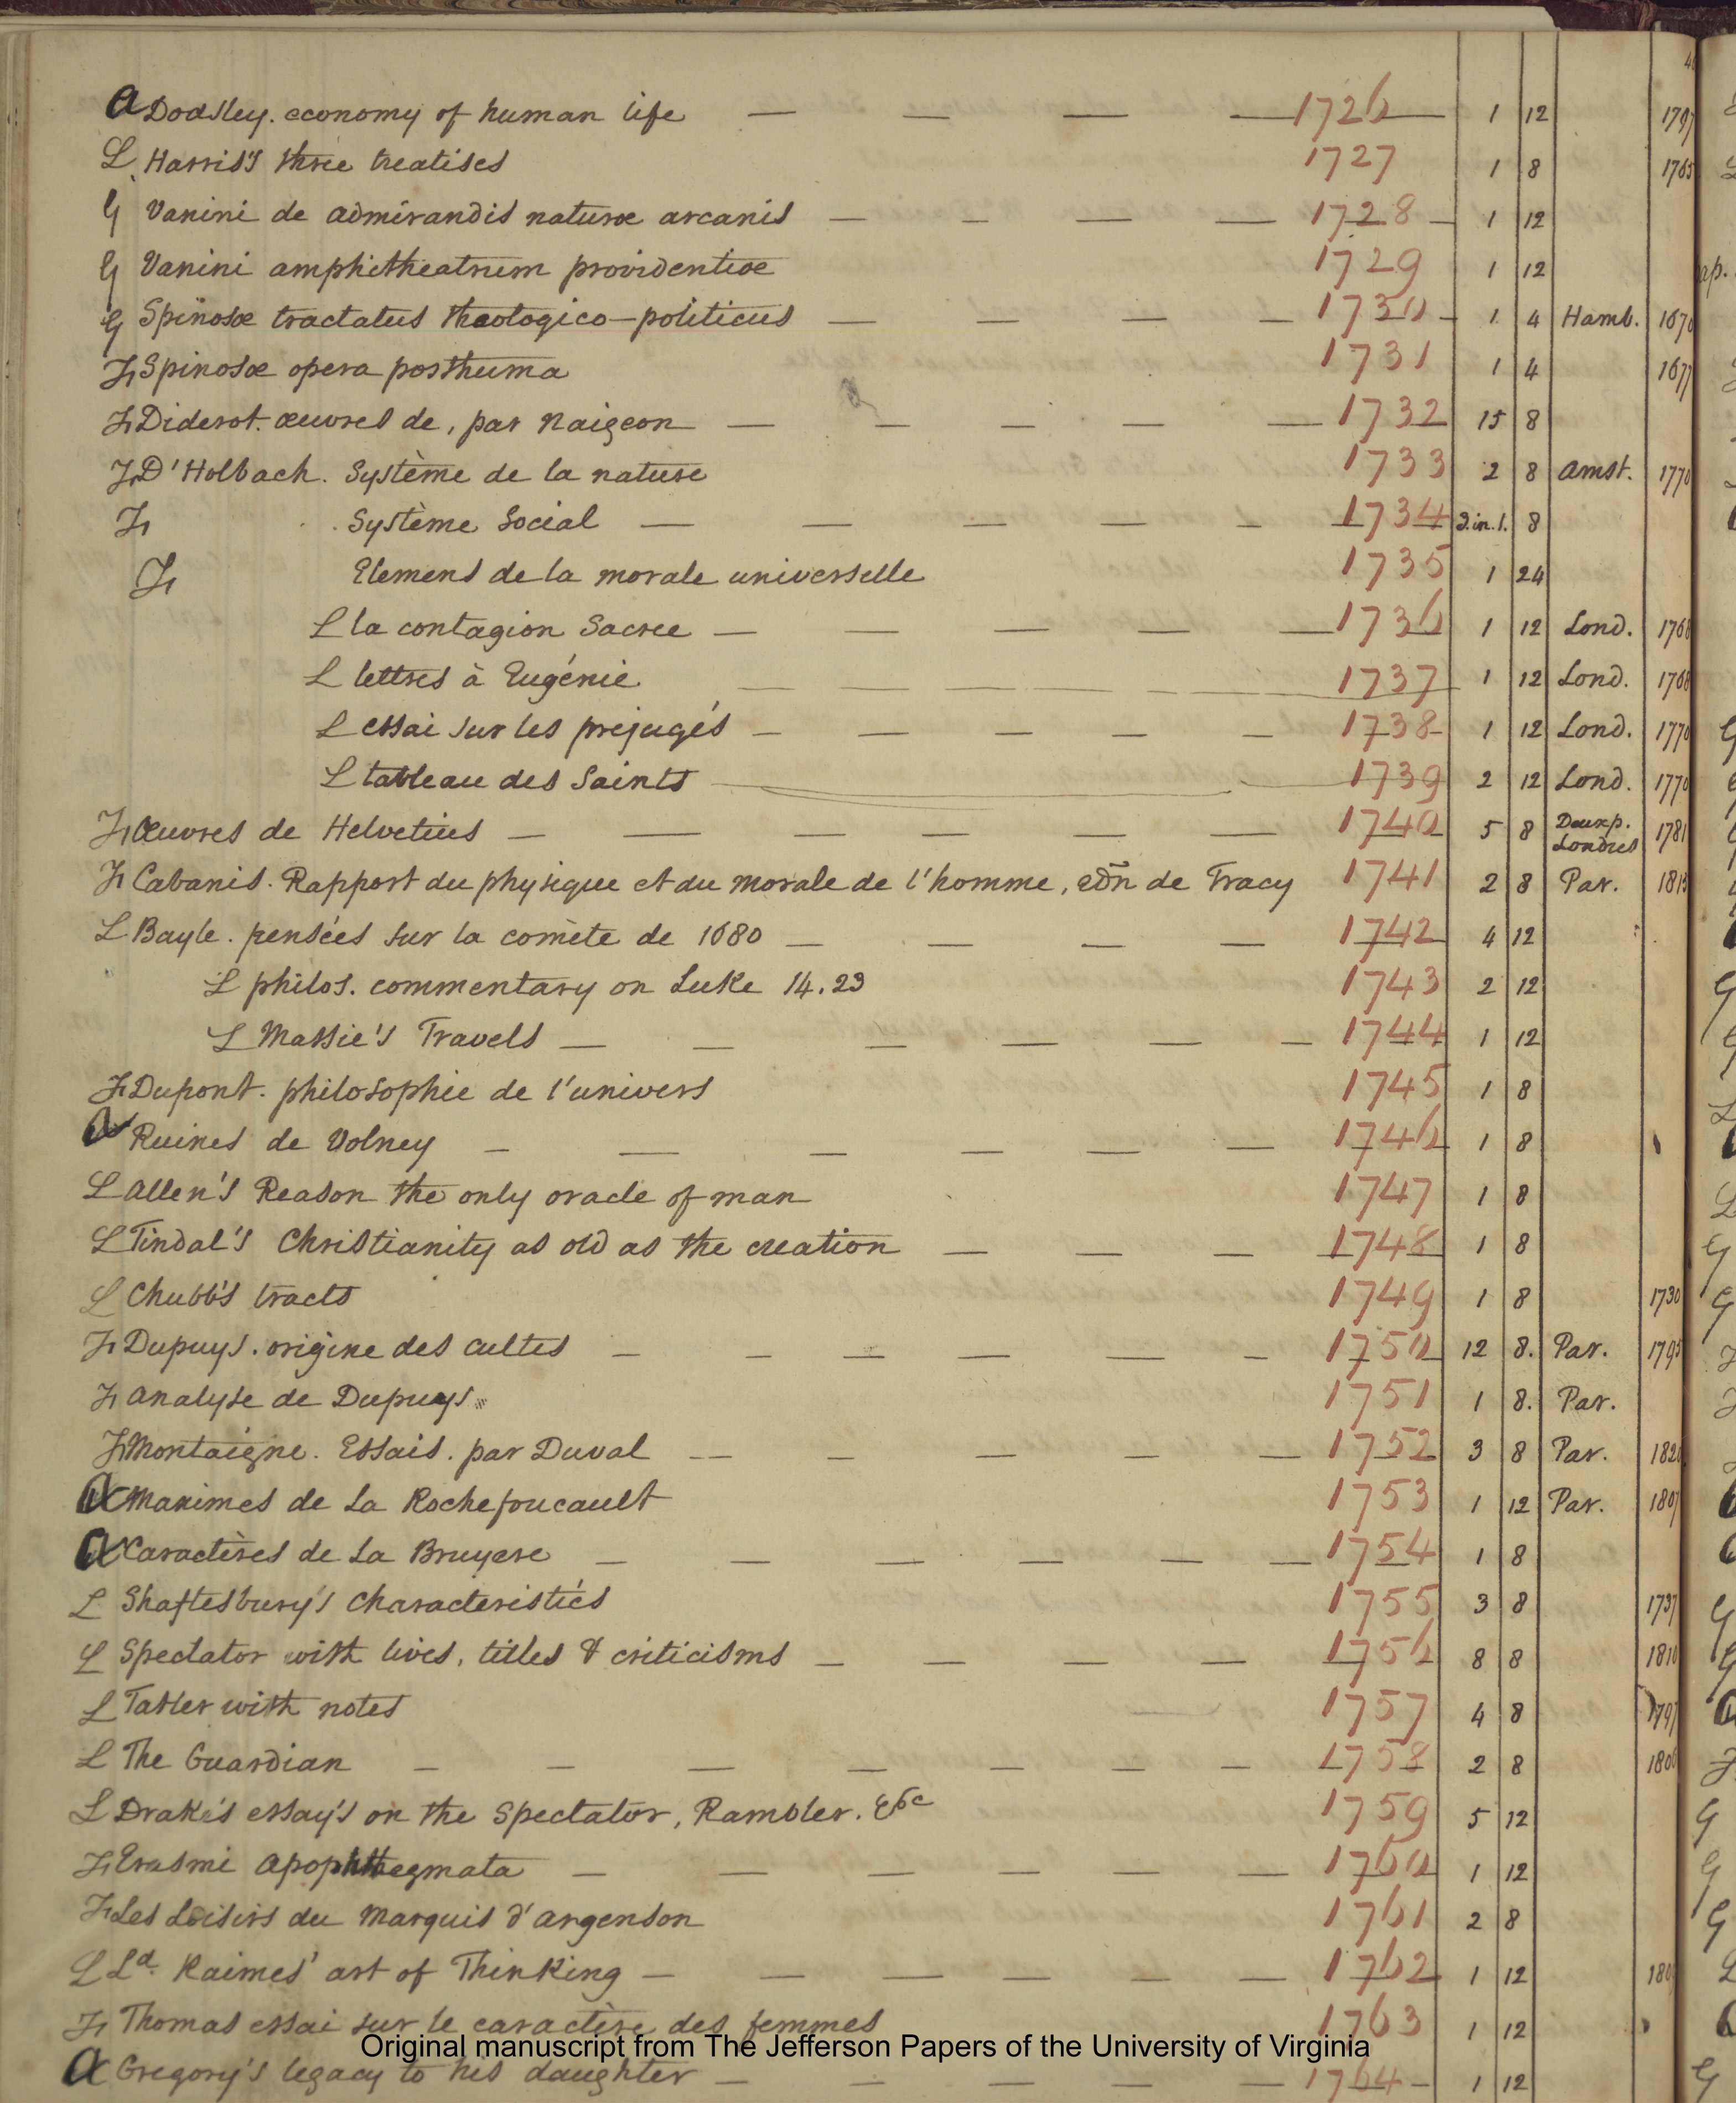 4
a Dodsley. economy of human life — — — — 1726 1 12 1797
L Harris's three treatises 1727 1 8 1765
G Vanini de admirandis naturæ arcanis — — — — 1728 1 12
G Vanini amphitheatrum providentiæ 1729 1 12
G Spinosæ tractatus theologico-politicus — — — — 1730 1 4 Hamb. 1670
F Spinosæ opera posthuma 1731 1 4 1677
F Diderot. œuvres de, par Naigeon — — — — — 1732 15 8
F D'Holbach. Système de la nature 1733 2 8 Amst. 1770
F Système Social — — — — — 1734 3.in.1. 8
F Elemens de la morale universelle 1735 1 24
L la contagion Sacree — — — — — 1736 1 12 Lond. 1768
L lettres à Eugénie 1737 1 12 Lond. 1768
L essai sur les prejugés — — — — — 1738 1 12 Lond. 1770
L tableau des Saints 1739 2 12 Lond. 1770
F Œuvres de Helvetius — — — — — — 1740 5 8 Deuxp. Londres 1781
F Cabanis. Rapport du physique et du morale de l'homme, edn de Tracy 1741 2 8 Par. 1815
L Bayle. pensées sur la comète de 1680 — — — — 1742 4 12
L philos. commentary on Luke 14.23 1743 2 12
L Massie's Travels — — — — — — 1744 1 12
F Dupont. philosophie de l'univers 1745 1 8
a Ruines de Volney — — — — — — 1746 1 8
L Allen's Reason the only oracle of man 1747 1 8
L Tindal's Christianity as old as the creation — — — 1748 1 8
L Chubb's tracts 1749 1 8 1730
F Dupuys. origine des cultes — — — — — — 1750 12 8. Par. 1795
F Analyse de Dupuys 1751 1 8. Par.
F Montaigne. Essais. par Duval — — — — — 1752 3 8 Par. 1820
a Maximes de La Rochefoucault 1753 1 12 Par. 1807
a Caractères de La Bruyere — — — — — — 1754 1 8
L Shaftesbury's Characteristics 1755 3 8 1737
L Spectator with lives, titles & criticisms — — — — 1756 8 8 1810
L Tatler with notes 1757 4 8 1797
L The Guardian — — — — — — — 1758 2 8 1806
L Drake's essay's on the Spectator, Rambler. &c 1759 5 12
F Erasmi Apophthegmata — — — — — — 1760 1 12
F Les Loisirs du Marquis d'Argenson 1761 2 8
L Ld. Kaimes' art of Thinking — — — — — — 1762 1 12 180
F Thomas essai sur le caractère des femmes 1763 1 12
Original manuscript from The Jefferson Papers of the University of Virginia
a Gregory's legacy to his daughter — — — — — 1764 1 12